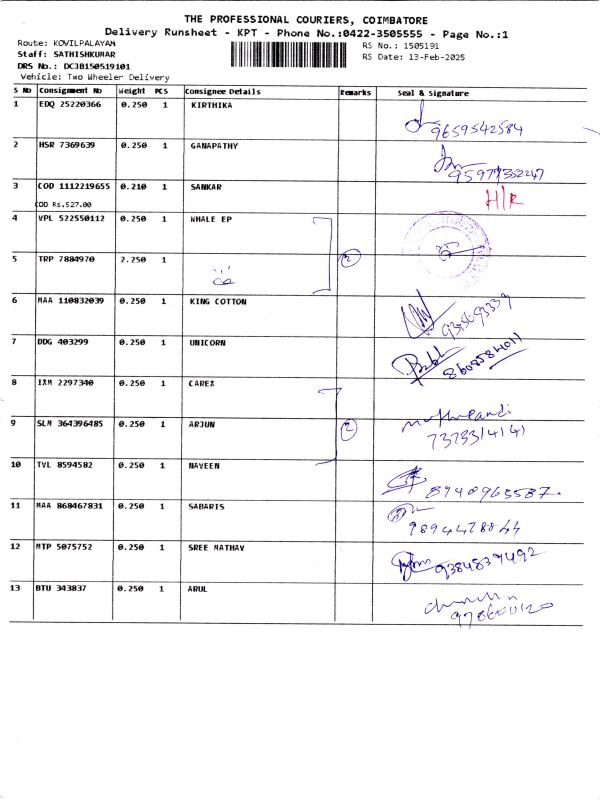 THE PROFESSIONAL COURIERS, COIMBATORE
Delivery Runsheet - KPT - Phone No.:0422-3505555 - Page No.:1
Route: KOVILPALAYAM
RS No.: 1505191
Staff: SATHISHKUMAR
RS Date: 13-Feb-2025
DRS No.: DCJB150519101
Vehicle: Two Wheeler Delivery
S No Consignment No Weight PCS Consignee Details Remarks Seal & Signature
1 EDQ 25220366 0.250 1 KIRTHIKA
9659542584
2 HSR 7369639 0.250 1 GANAPATHY
3 COD 1112219655 0.210 1 SANKAR H/R
COD Rs.527.00
4 VPL 522550112 0.250 1 WHALE EP
5 TRP 7884970 2.250 1 2
6 MAA 110832039 0.250 1 KING COTTON
7 DDG 403299 0.250 1 UNICORN
8608584011
8 IXM 2297340 0.250 1 CAREX
9 SLM 364396485 0.250 1 ARJUN 2
7373314141
10 TVL 8594582 0.250 1 NAVEEN
8940963587.
11 MAA 868467831 0.250 1 SABARIS
9894478844
12 MTP 5075752 0.250 1 SREE MATHAV
9384837492
13 BTU 343837 0.250 1 ARUL